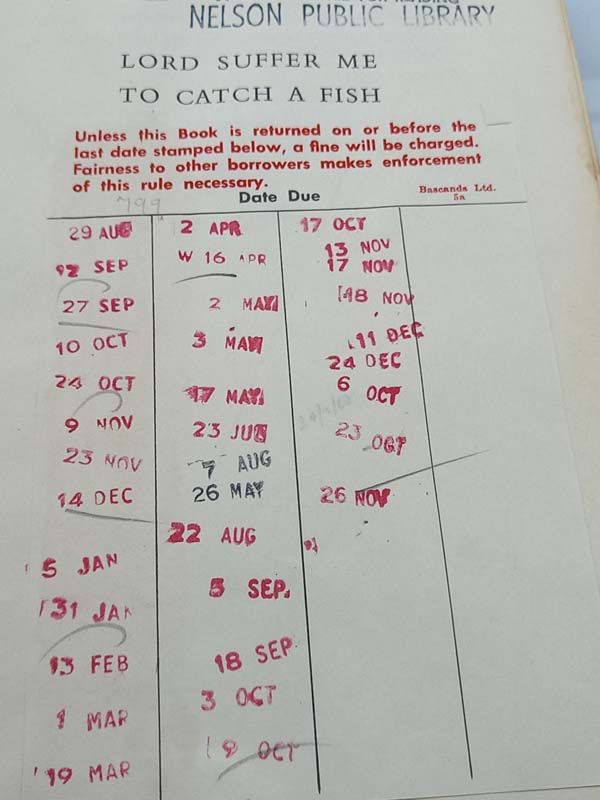 NELSON PUBLIC LIBRARY
LORD SUFFER ME
TO CATCH A FISH
Unless this Book is returned on or before the
last date stamped below, a fine will be charged.
Fairness to other borrowers makes enforcement
of this rule necessary.
Bascands Ltd.
5a
799
Date Due
29 AUG
12 SEP
27 SEP
10 OCT
24 OCT
9 NOV
23 NOV
14 DEC
5 JAN
31 JAN
13 FEB
1 MAR
19 MAR
2 APR
W 16 APR
2 MAY
3 MAY
17 MAY
23 JUN
7 AUG
26 MAY
22 AUG
5 SEP.
18 SEP
3 OCT
19 OCT
17 OCT
13 NOV
17 NOV
18 NOV
11 DEC
24 DEC
6 OCT
23 OCT
26 NOV